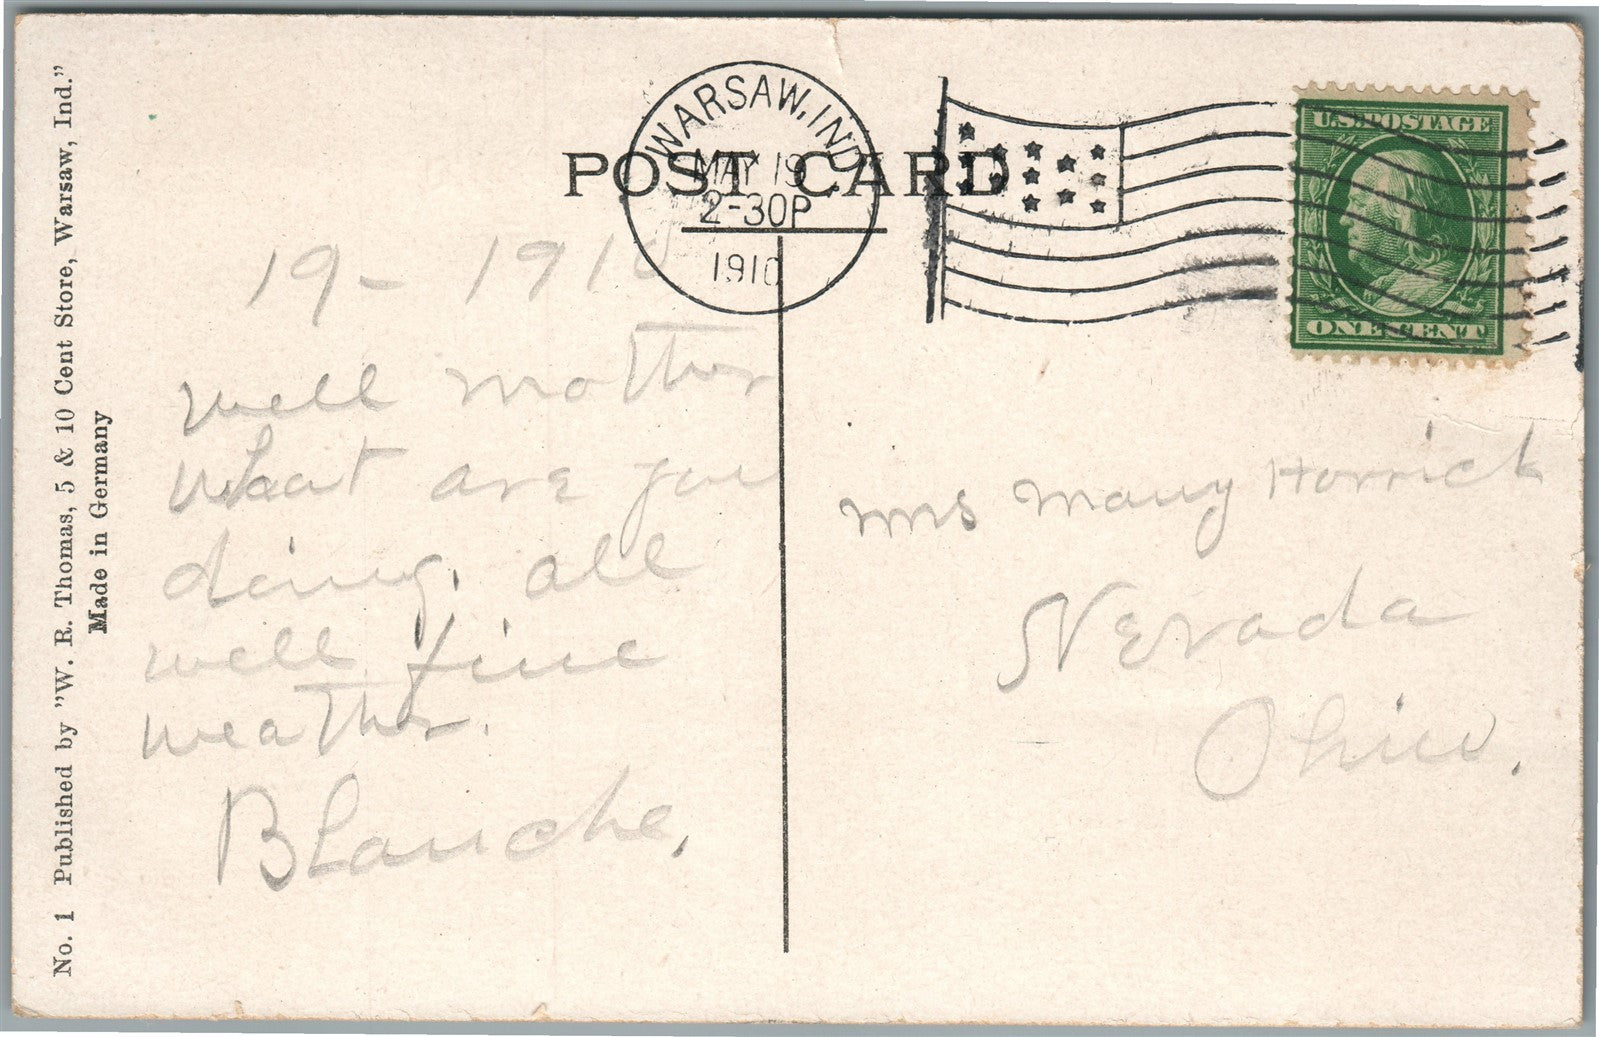 No. 1 Published by "W. R. Thomas, 5 & 10 Cent Store, Warsaw, Ind."
Made in Germany
POST CARD
WARSAW, IND.
MAY 19
2-30P
1910
U.S. POSTAGE
ONE CENT
19 - 1910
well mother
what are you
doing. all
well fine
weather.
Blanche.
Mrs Mary Horrick
Nevada
Ohio.